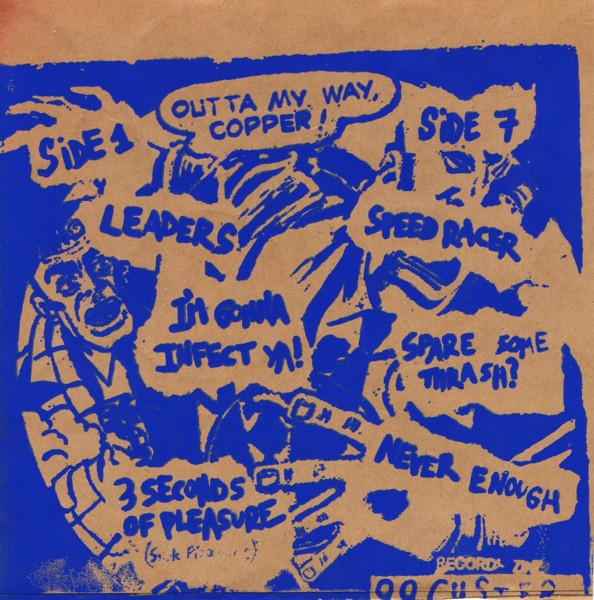 OUTTA MY WAY,
COPPER!
SiDE 1
LEADERS
I'M GONNA
INFECT YA!
3 SECONDS
OF PLEASURE
SiDE 7
SPEED RACER
SPARE SOME
THRASH?
NEVER ENOUGH
RECORDS
99 CUSTER